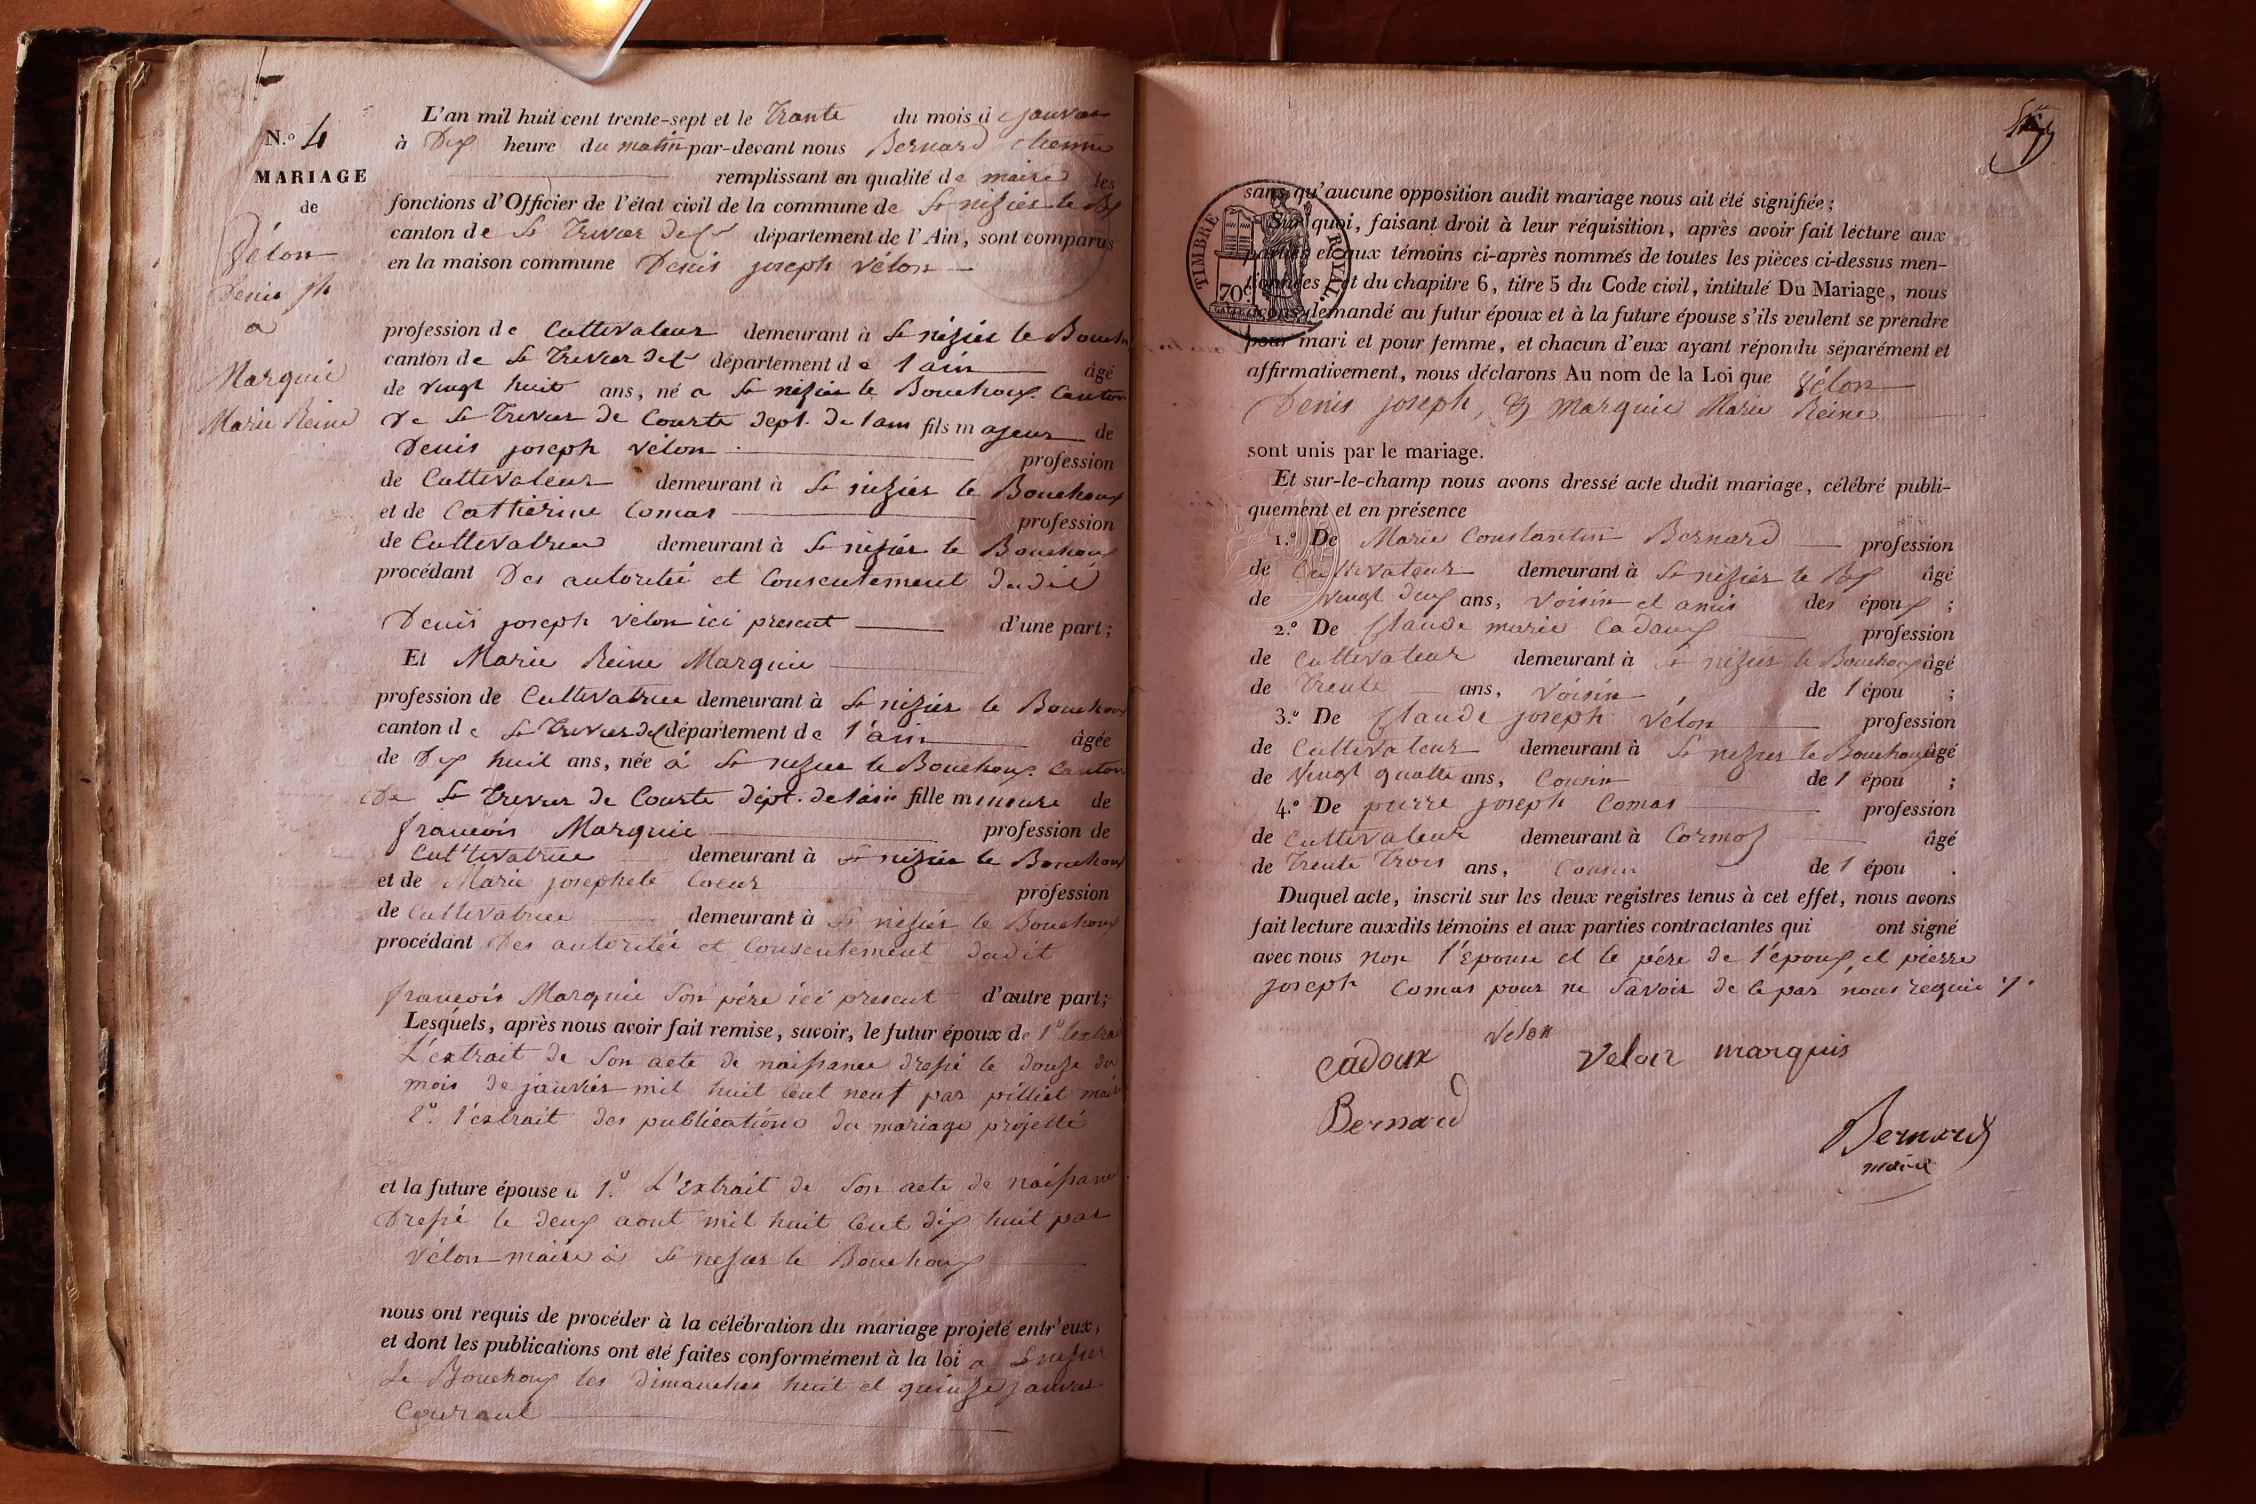 N.º 4
MARIAGE
de
Vélon
Denis jh
a
Marquis
Marie Reine
L'an mil huit cent trente-sept et le Trante du mois d e janvier
à Dix heure du matin par-devant nous Bernard etienne
remplissant en qualité de maire les
fonctions d'Officier de l'état civil de la commune de St nizier le Bx
canton de St Trivier de Cs département de l'Ain, sont comparus
en la maison commune Denis joseph vélon
profession de Cultivateur demeurant à St nizier le Bouch
canton de St Trivier de Cs département de l'ain âgé
de vingt huit ans, né a St nizier le Bouchoux Canton
De St Trivier de Courte dept. de l'ain fils majeur de
Denis joseph vélon profession
de Cultivateur demeurant à St nizier le Bouchoux
et de Cathérine Comas profession
de Cultivatrice demeurant à St nizier le Bouchoux
procédant Des autorité et Consentement dudit
Denis joseph vélon ici present d'une part;
Et Marie Reine Marquis
profession de Cultivatrice demeurant à St nizier le Bouchoux
canton d e St Trivier de Cs département de l'ain âgée
de Dix huit ans, née à St nizier le Bouchoux Canton
De St Trivier de Courte dépt. de l'ain fille mineure de
francois Marquis profession de
Cultivatrice demeurant à St nizier le Bouchoux
et de Marie josephete Coeur profession
de Cultivatrice demeurant à St nizier le Bouchoux
procédant Des autorité et Consentement dudit
francois Marquis Son pére ici present d'autre part;
Lesquels, après nous avoir fait remise, savoir, le futur époux de 1º l'extrai
L'extrait de Son acte de naissance dressé le douze du
mois de janvier mil huit Cent neuf par pilliet maire
2º. l'éxtrait des publications du mariage projetté
et la future épouse d 1.º L'Extrait de Son acte de naissance
Dressé le deux aout mil huit Cent dix huit par
vélon maire à St nizier le Bouchoux
nous ont requis de procéder à la célébration du mariage projeté entr'eux,
et dont les publications ont été faites conformément à la loi a St nizier
le Bouchoux les dimanches huit et quinze janvier
Courant
TIMBRE ROYAL
70c
sans qu'aucune opposition audit mariage nous ait été signifiée;
Sur quoi, faisant droit à leur réquisition, après avoir fait lecture aux
parties et aux témoins ci-après nommés de toutes les pièces ci-dessus men-
tionnées, et du chapitre 6, titre 5 du Code civil, intitulé Du Mariage, nous
avons demandé au futur époux et à la future épouse s'ils veulent se prendre
pour mari et pour femme, et chacun d'eux ayant répondu séparément et
affirmativement, nous déclarons Au nom de la Loi que Vélon
Denis joseph, & Marquis Marie Reine
sont unis par le mariage.
Et sur-le-champ nous avons dressé acte dudit mariage, célébré publi-
quement et en présence
1.º De Marie Constantin Bernard profession
de Cultivateur demeurant à St nizier le Bx âgé
de vingt deux ans, voisin et amis des époux ;
2.º De Claude marie Cadoux profession
de Cultivateur demeurant à St nizier le Bouchoux âgé
de Trente ans, voisin , de l' épou ;
3.º De Claude joseph vélon profession
de Cultivateur demeurant à St nizier le Bouchoux âgé
de vingt quatre ans, Cousin de l' épou ;
4.º De pierre joseph Comas profession
de Cultivateur demeurant à Cormoz âgé
de Trente Trois ans, Cousin de l' épou .
Duquel acte, inscrit sur les deux registres tenus à cet effet, nous avons
fait lecture auxdits témoins et aux parties contractantes qui ont signé
avec nous non l'épouse et le pére de l'époux, et pierre
joseph Comas pour ne Savoir de le par nous requis
velon
cadoux velon marquis
Bernard
Bernard
maire